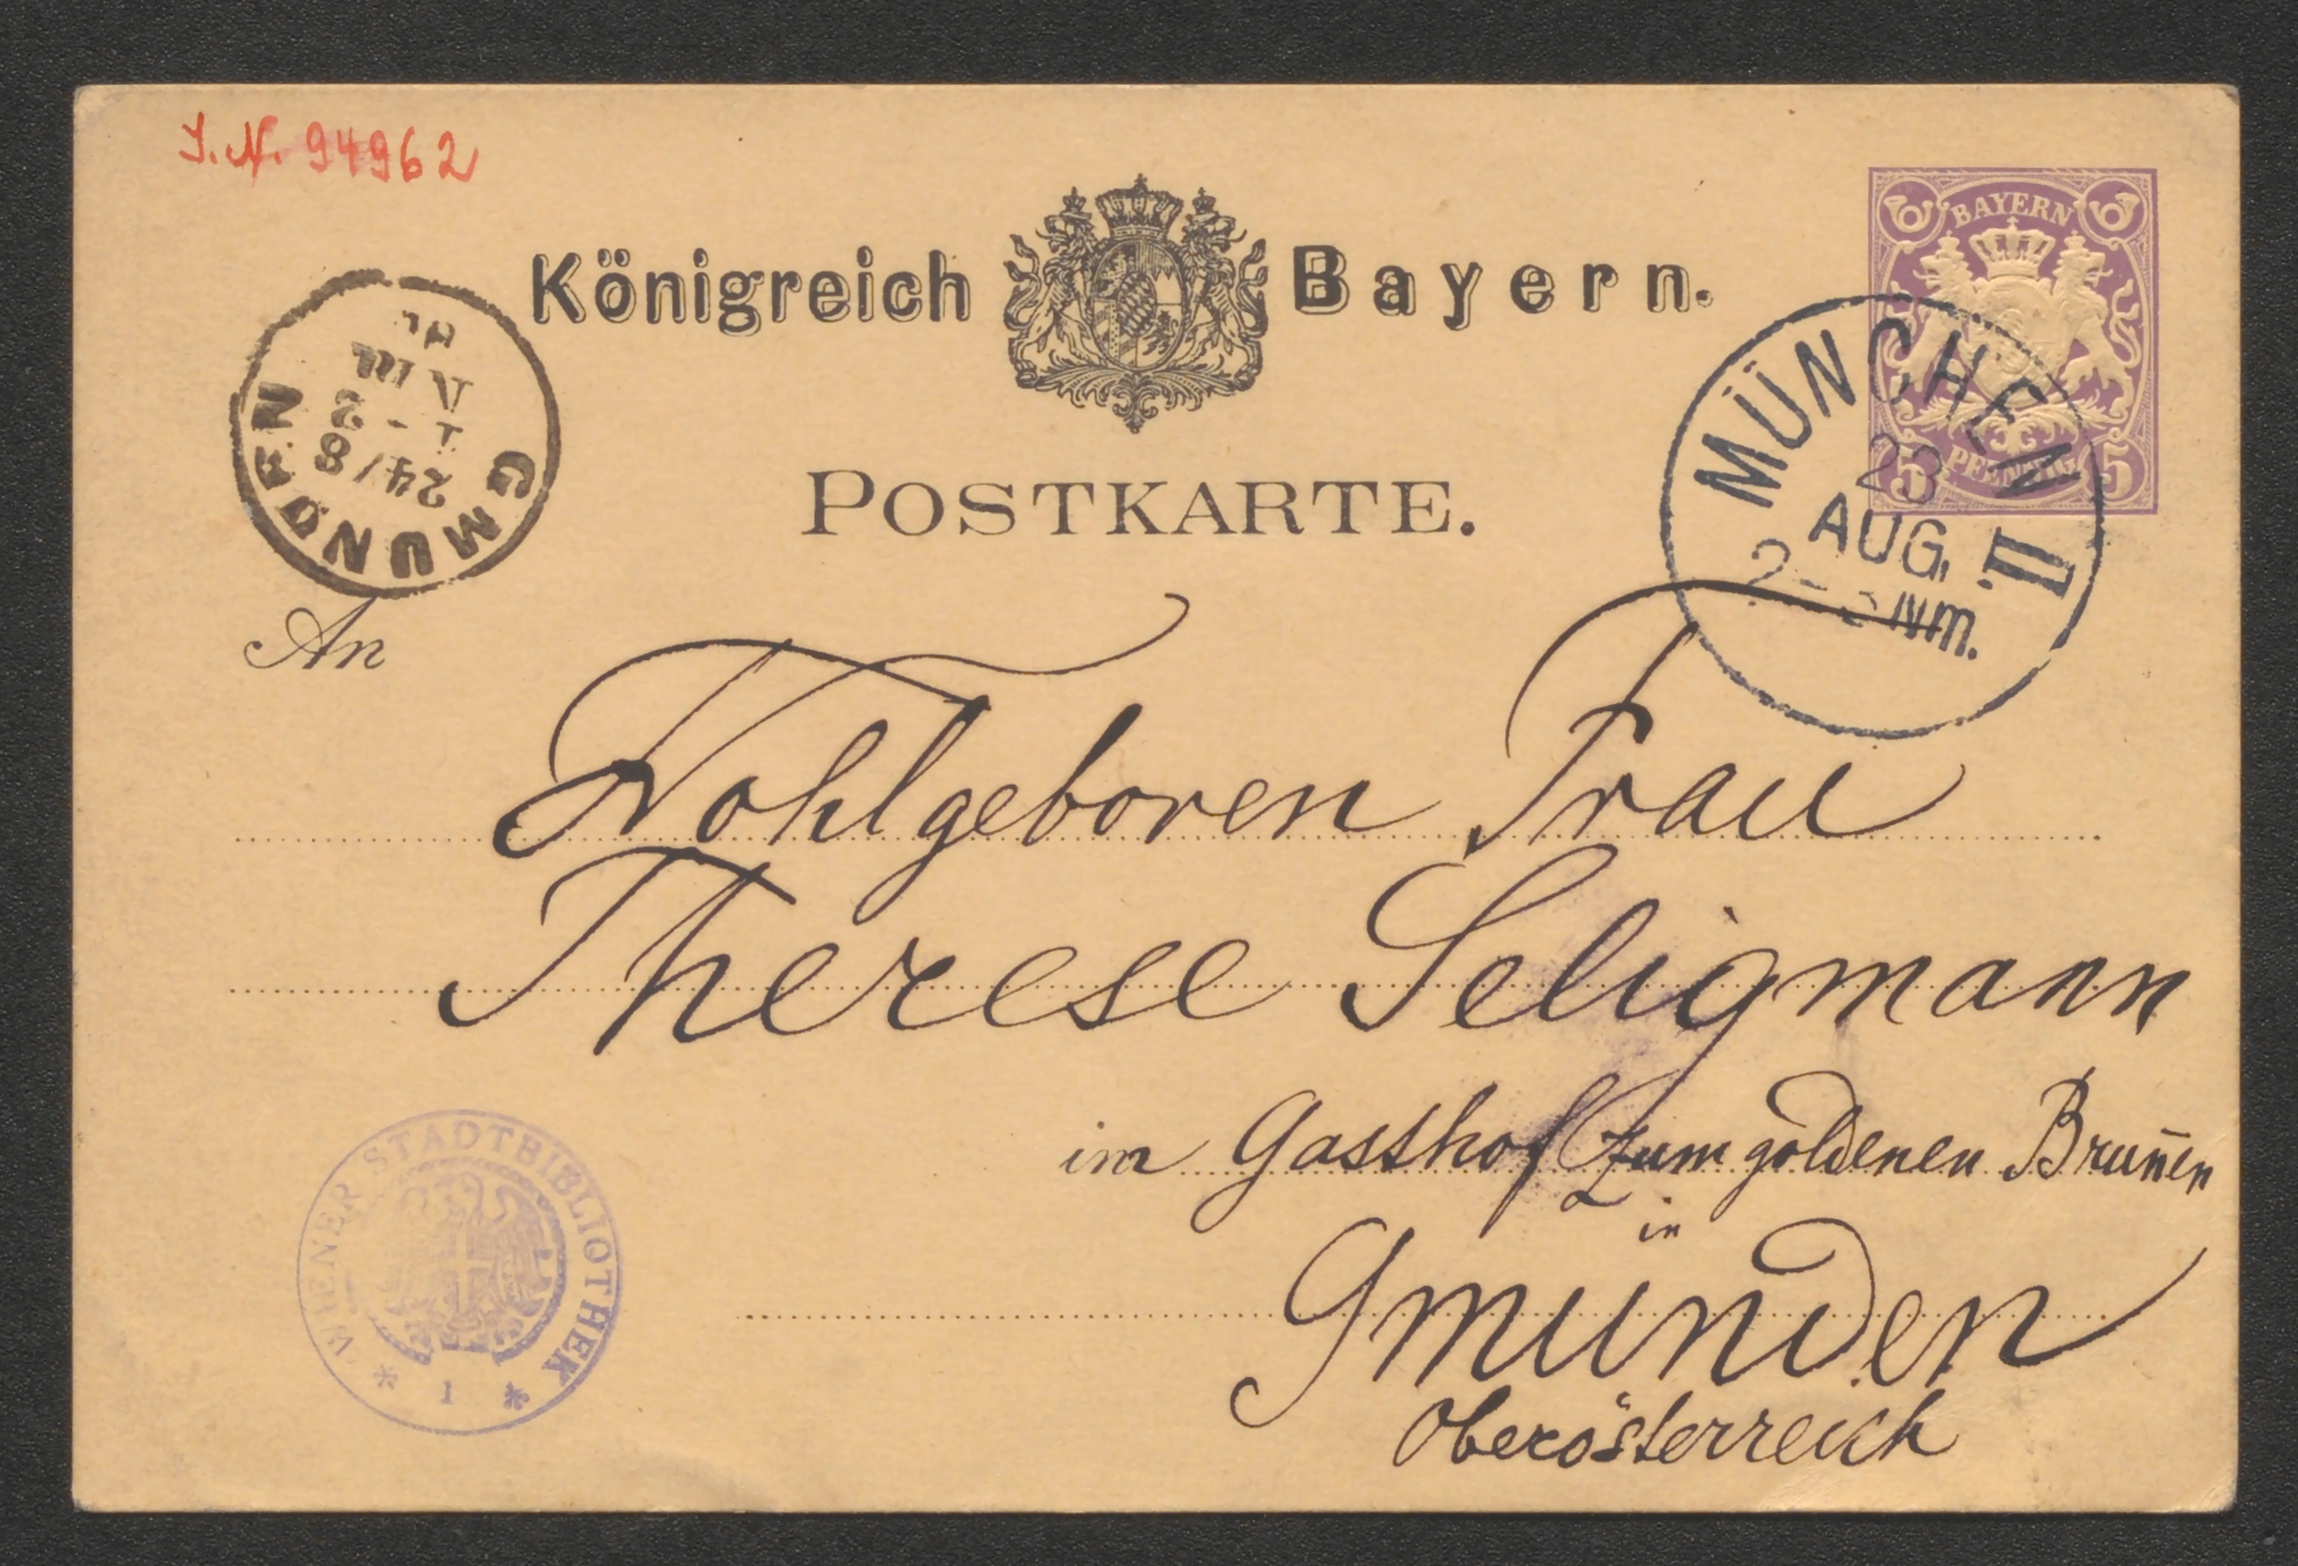 J. N. 94962
BAYERN
Königreich Bayern.
5 PFENNIG 5
POSTKARTE.
MÜNCHEN II
23
AUG.
Nm.
GMUNDEN
24/8
An
Wohlgeboren Frau
Therese Seligmann
im Gasthof zum goldenen Brun̄en
in
Gmünden
Oberösterreich
WIENER STADTBIBLIOTHEK
* 1 *